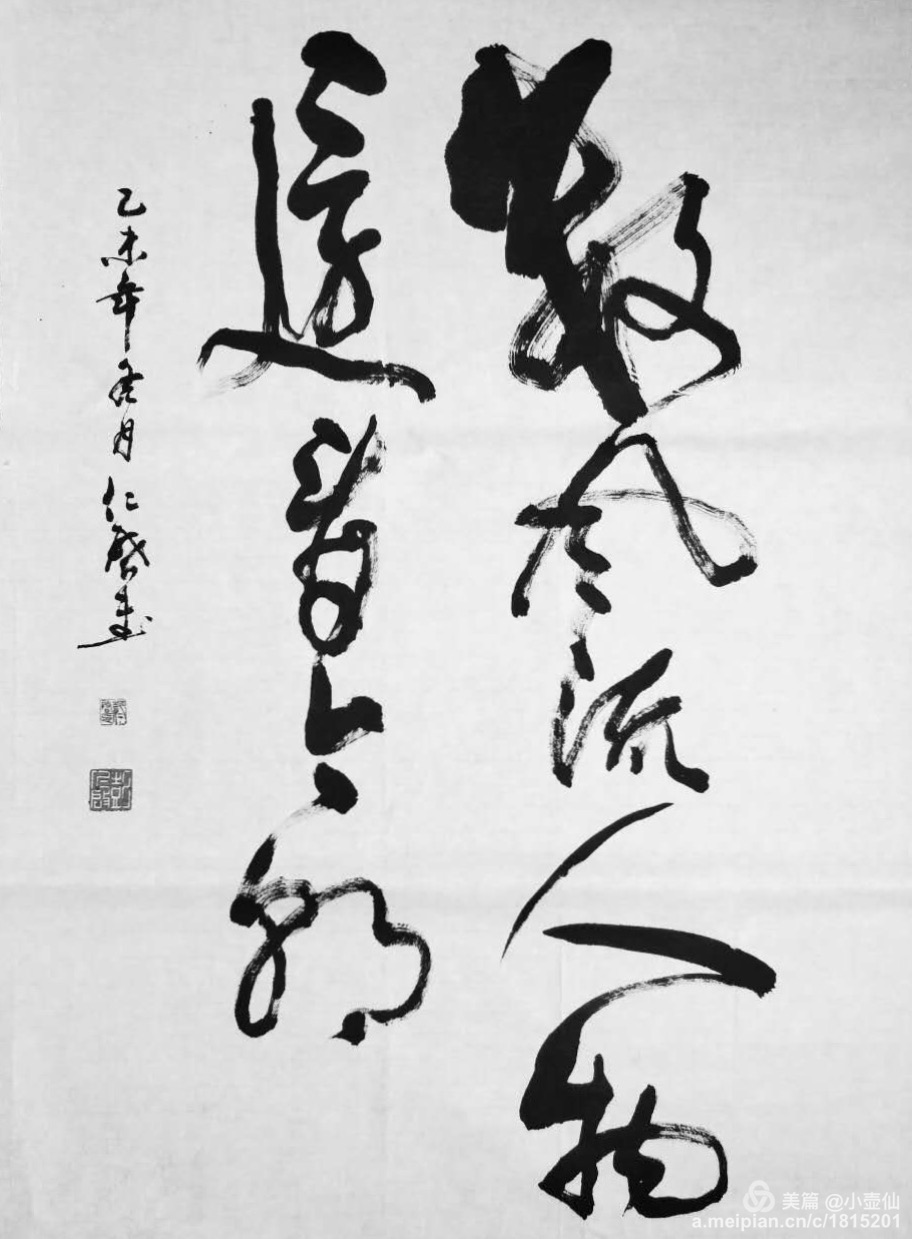 数风流人物
还看今朝
乙未年冬月仁启书
美篇 @小壶仙
a.meipian.cn/c/1815201